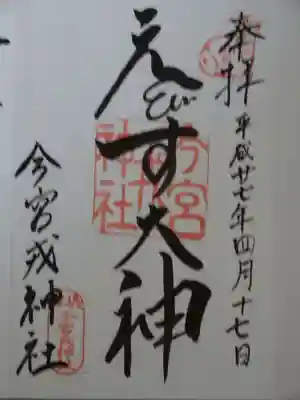 奉拝 平成廿七年四月十七日
えびす大神
今宮戎神社